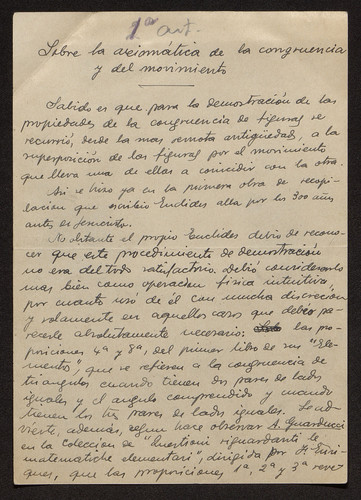 1ª art.
Sobre la axiomática de la congruencia
y del movimiento
Sabido es que para la demostración de las
propiedades de la congruencia de figuras se
recurrió, desde la mas remota antigüedad, a la
superposición de las figuras por el movimiento
que lleva una de ellas a coincidir con la otra.
Asi se hizo ya en la primera obra de recopi-
lacion que escribió Euclides alla por los 300 años
antes de Jesucristo.
No obstante el propio Euclides debió de recono-
cer que este procedimiento de demostración
no era del todo satisfactorio. Debió considerarlo
mas bien como operacion fisica intuitiva,
por cuanto usó de él con mucha discrecion
y solamente en aquellos casos que debió pa-
recerle absolutamente necesario: las pro-
posiciones 4ª y 8ª, del primer libro de sus "Ele-
mentos", que se refieren a la congruencia de
triangulos cuando tienen dos pares de lados
iguales y el angulo comprendido y cuando
tienen los tres pares de lados iguales.
vierte, además, segun hace observar A. Guarducci
en la coleccion de "Questioni riguardanti le
matematiche elementari", dirigida por F. Enri-
ques, que las proposiciones 1ª, 2ª y 3ª reve-